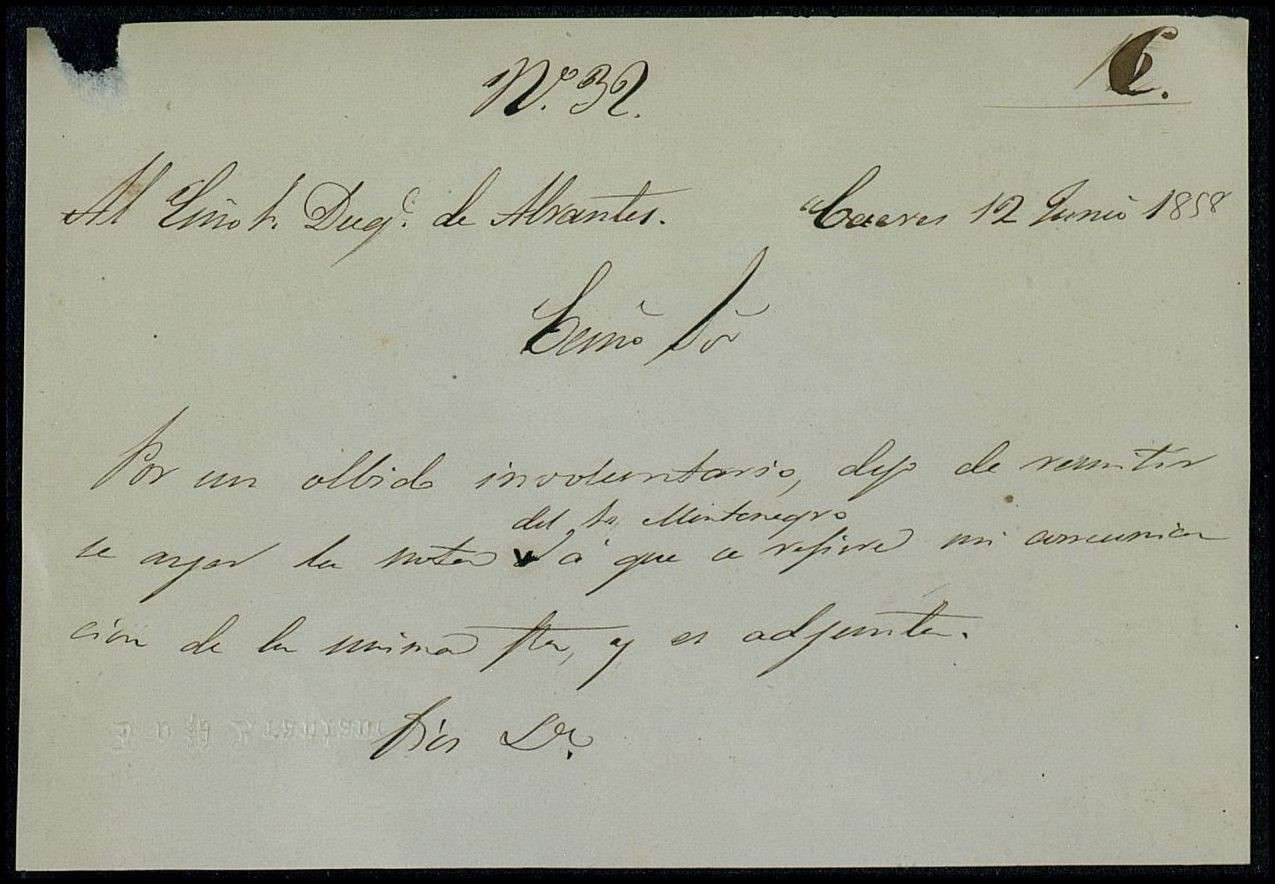 Nº. 32.
C.
Al Exmo Sr. Duqe. de Abrantes. Caceres 12 Junio 1858
Exmo Sõr
Por un olbido involuntario, dejo de remitir
del Sr. Montenegro
se ayer la nota á que se refiere mi comunica
cion de la misma fha, y es adjunta.
Dios &a.